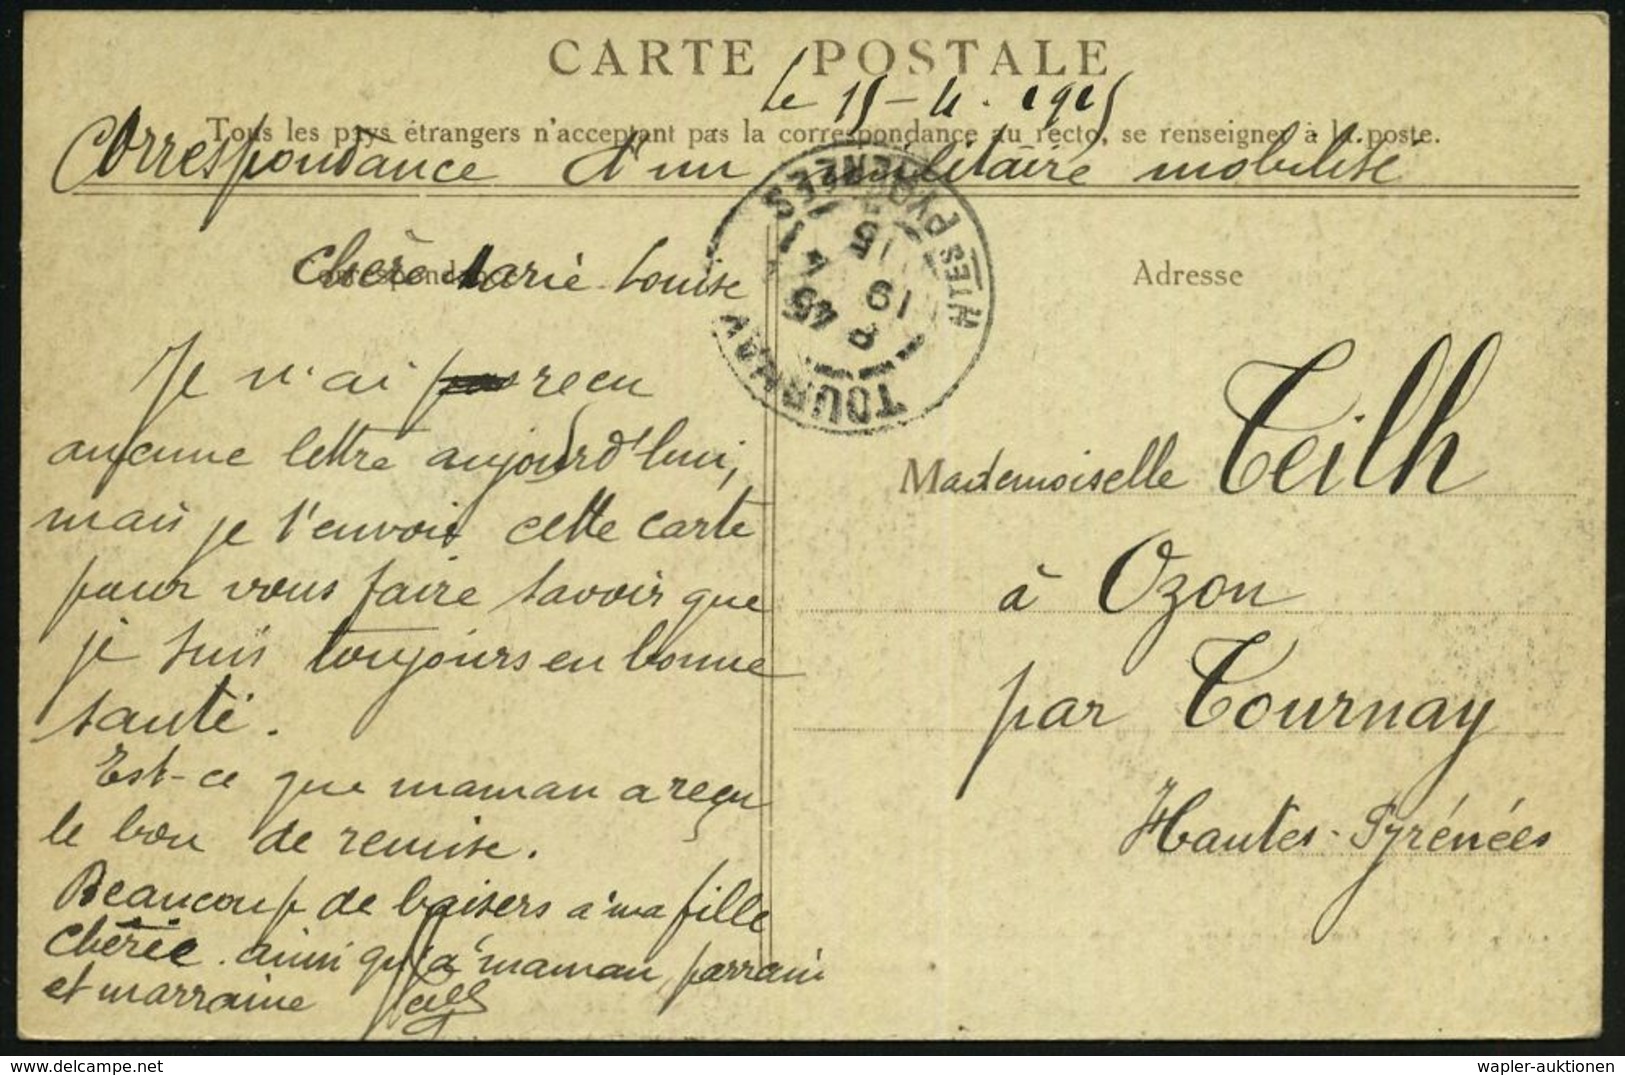 CARTE POSTALE
le 15-4. 1915
Tous les pays étrangers n'acceptant pas la correspondance au recto, se renseigner à la poste.
Correspondance d'un militaire mobilisé
Correspondance
Chère Marie Louise
Je n'ai pas recu
aucune lettre aujourd'hui,
mais je t'envoie cette carte
pour vous faire savoir que
je suis toujours en bonne
santé.
Est-ce que maman a reçu
le bon de remise.
Beaucoup de baisers à ma fille
chérie ainsi qu'à maman, parrain
et marraine Teilh
TOURNAY
HTES PYRÉNÉES
8 45
19 4
15
Adresse
Mademoiselle Teilh
à Ozon
par Tournay
Hautes-Pyrénées
www.delcampe.net
wapler-auktionen